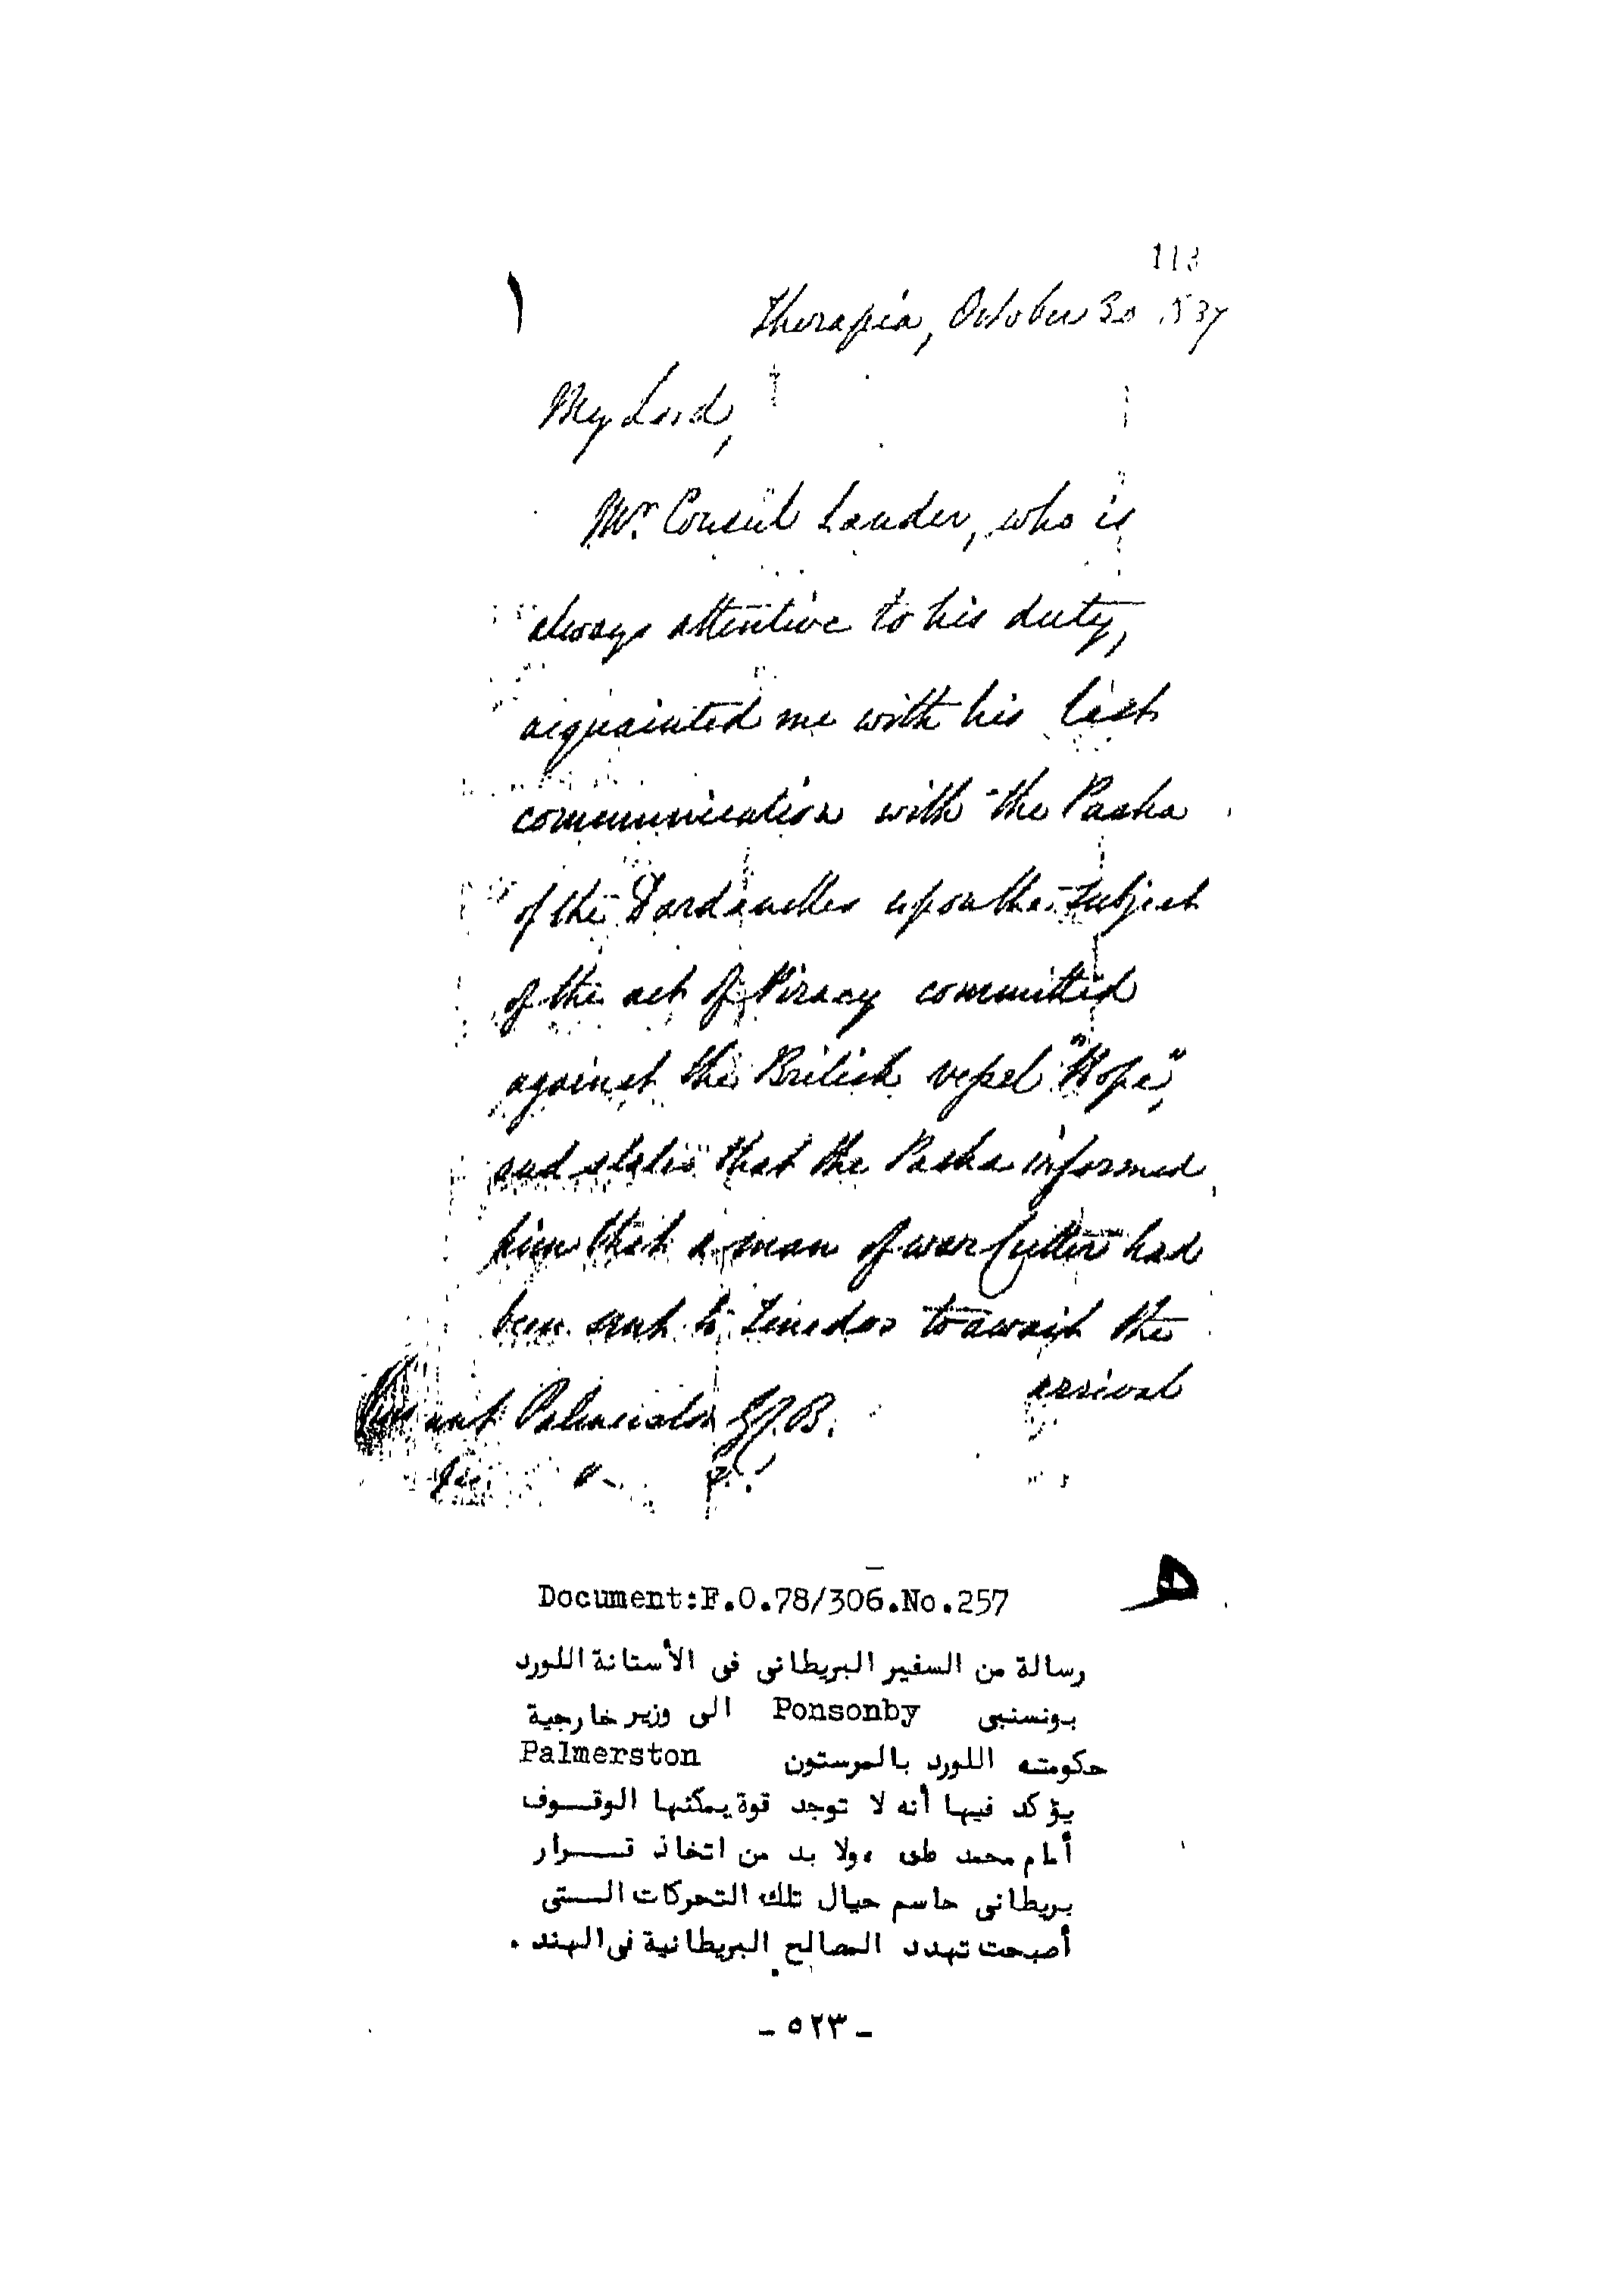 113
١
Therapia, October 30 1837
My Lord,
Mr. Consul Lander, who is
always attentive to his duty,
acquainted me with his last
communication with the Pasha
of the Dardanelles upon the subject
of the act of Piracy committed
against the British vessel "Hope",
and states that the Pasha informed
him that a man of war Cutter had
been sent to Tenedos to await the
arrival
Viscount Palmerston G.C.B.
Document:F.O.78/306.No.257
ه
رسالة من السفير البريطانى فى الأستانة اللورد
بونسنبى Ponsonby الى وزير خارجية
حكومته اللورد بالمرستون Palmerston
يؤكد فيها أنه لا توجد قوة يمكنها الوقــوف
أمام محمد على ، ولا بد من اتخاذ قــرار
بريطانى حاسم حيال تلك التحركات الــتى
أصبحت تهدد المصالح البريطانية فى الهند .
- ٥٢٣ -